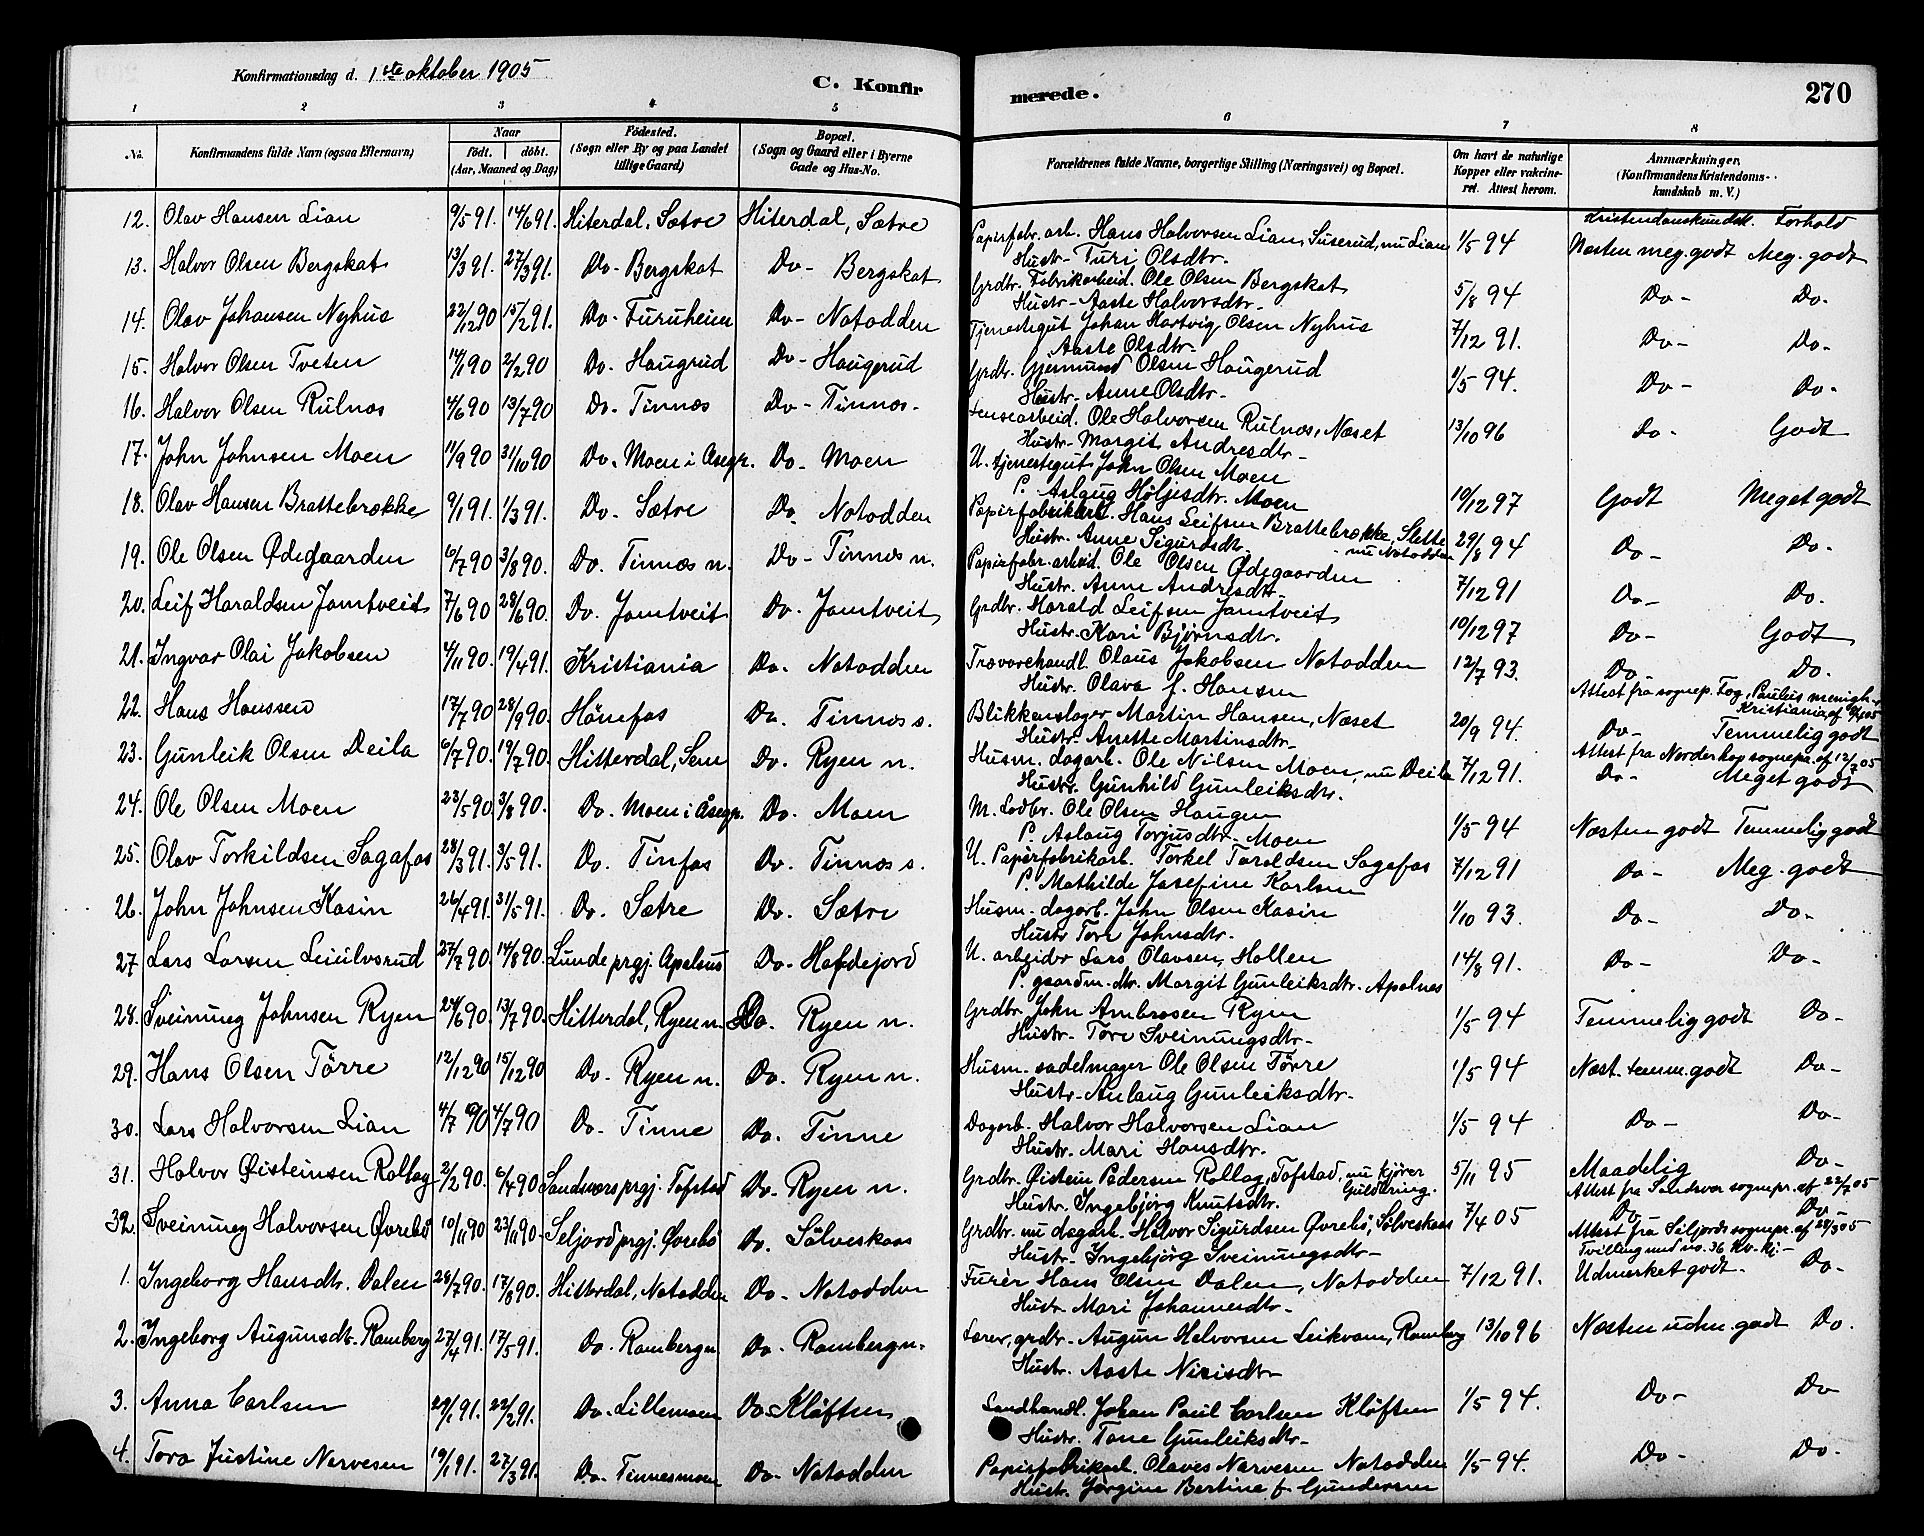 Konfirmationsdag d. 1ste oktober 1905
C. Konfirmerede.
270
1 2 3 4 5 6 7 8
No. Konfirmandens fulde Navn (ogsaa Efternavn) Naar født. døbt. (Aar, Maaned og Dag) Fødested. (Sogn eller By og paa Landet tillige Gaard) Bopæl. (Sogn og Gaard eller i Byerne Gade og Hus-No. Forældrenes fulde Navne, borgerlige Stilling (Næringsvei) og Bopæl. Om havt de naturlige Kopper eller vakcineret. Attest herom. Anmærkninger, (Konfirmandens Kristendomskundskab m. V.)
Kristendomskundsk. Forhold
12. Olav Hansen Lian 9/5 91. 14/6 91. Hiterdal, Sætre Hiterdal, Sætre Papirfabr. arb. Hans Halvorsen Lian, Suserud, nu Lian 1/5 94 Næsten meg. godt Meg. godt
Hustr. Turi Olsdtr.
13. Halvor Olsen Bergskat 13/3 91. 27/3 91. Do- Bergskat Do- Bergskat Grdbr. Fabrikarbeid. Ole Olsen Bergskat 5/8 94 Do- Do.
Hustr- Aaste Halvorsdtr.
14. Olav Johansen Nyhus 22/12 90 15/2 91. Do- Furuheim Do- Notodden Tjenestegut Johan Hartvig Olsen Nyhus 7/12 91. Do- Do-
Aaste Olsdtr-
15. Halvor Olsen Tveten 14/1 90 2/2 90 Do- Haugrud Do- Haugerud Grdbr. Gjermund Olsen Haugerud 1/5 94. Do- Do-
Hustr- Anne Olsdtr-
16. Halvor Olsen Rulnæs 4/6 90 13/7 90 Do- Tinnæs Do- Tinnæs- Ole Halvorsen Rulnæs, Næset 13/10 96 Do- Godt
Hustr- Margit Andresdtr-
17. John Johnsen Moen 11/9 90 31/10 90 Do. Moen i Åsegr. Do- Moen U. tjenestegut John Olsen Moen 10/12 97 Godt Meget godt
P. Aslaug Høljesdtr. Moen
18. Olav Hansen Brattebrække 9/1 91. 1/3 91. Do- Sætre Do. Notodden Papirfabrikarb. Hans Leifsen Brattebrække, Slette 29/8 94 Do- Do.
Hustr. Anne Sigurdsdtr. nu Notodden
19. Ole Olsen Ødegaarden 6/7 90 3/8 90. Do. Tinnæs n. Do- Tinnæs n. Papirfabr. arbeid. Ole Olsen Ødegaarden 7/12 91 Do- Do.
Hustr. Anne Andresdtr-
20. Leif Haraldsen Jamtveit 7/6 90 28/6 90. Do. Jamtveit Do. Jamtveit Grdbr. Harald Leifsen Jamtveit 10/12 97 Do- Godt
Hustr. Kari Bjørnsdtr.
21. Ingvar Olai Jakobsen 4/11 90. 19/4 91. Kristiania Do. Notodden Trævarehandl. Olaus Jakobsen Notodden 12/7 93. Do Do.
Hustr. Olava f. Hansen
Attest fra sognep. Fog, Paulus menigh. Kristiania af
22. Hans Hanssen 17/7 90 28/9 90. Hønefos Do. Tinnæs s. Blikkenslager Martin Hansen, Næset 20/9 94. Do- Temmelig godt
Hustr- Anette Martinsdtr-
Attest fra Norderhov sognepr. af 12/7 05
23. Gunleik Olsen Deila 6/7 90. 19/7 90. Hitterdal, Sem Do. Ryen n. Husm. dagarb. Ole Nilsen Moen, nu Deila 7/12 91. Do- Meget godt
Hustr. Gunhild Gunleiksdtr.
24. Ole Olsen Moen 23/5 90. 3/8 90. Do. Moen i Åsegr. Do. Moen M. Lodbr. Ole Olsen Haugen 1/5 94 Næsten godt Temmelig godt
P. Aslaug Torjusdtr- Moen
25. Olav Torkildsen Sagafos 28/3 91. 3/5 91. Do. Tinfos Do. Tinnæs s. U. Papirfabrikarb. Torkel Taroldsen Sagafos 7/12 91 Do- Meg. godt
P. Mathilde Josefine Karlsen
26. John Johnsen Kasin 26/4 91. 31/5 91. Do. Sætre Do. Sætre Husm. dagarb. John Olsen Kasin 1/10 93. Do- Do-
Hustr Tore Johnsdtr.
27 Lars Larsen 27/7 90 14/8 90. Lunde prgj. Apalnes Do- Hafdejord U. arbeider Lars Olavsen, Hollen 14/8 91. Do- Do-
P. gaardm. dtr. Margit Gunleiksdtr. Apalnes
28. Sveinung Johnsen Ryen 24/6 90. 13/7 90. Hitterdal, Ryen n. Do. Ryen n. Grdbr John Ambrosen Ryen 1/5 94 Temmelig godt Do-
Hustr- Tore Sveinungsdtr-
29. Hans Olsen Tørre 12/12 90 15/12 90 Do- Ryen n. Do. Ryen n. Husm. sadelmager Ole Olsen Tørre 1/5 94 Næst. temm. godt Do-
Hustr- Anlaug Gunleiksdtr-
30. Lars Halvorsen Lian 4/7 90 4/7 90 Do- Tinne Do. Tinne Dagarb. Halvor Halvorsen Lian 1/5 94 Do- Do-
Hustr. Mari Hansdtr.
31. Halvor Øisteinsen Rollag 2/2 90. 6/4 90 Sandsværs prgj. Tofstad Do- Ryen n. Grdbr. Øistein Pedersen Rollag, Tofstad, nu kjører Guldbring. 5/11 95 Maadelig Do-
Hustr. Ingebjørg Knutsdtr. Attest fra Sandsvær sognepr. af 22/7 05
32. Sveinung Halvorsen Øvrebø 10/11 90 23/11 90. Seljord prgj. Øvrebø Do. Sølveskaas Grdbr. nu dagarb. Halvor Sigurdsen Øvrebø, Sølveskaas 7/4 05 Do Do-
Hustr- Ingebjørg Sveinungsdtr- Attest fra Siljords sognepr. af 28/5 05
Tvilling med no. 36 Kv. kj-
1. Ingeborg Hansdtr. Dalen 28/7 90. 17/8 90. Hitterdal, Notodden Do- Notodden Furér Hans Olsen Dalen, Notodden 7/12 91. Udmærket godt. Do-
Hustr Mari Johannesdtr-
2. Ingeborg Augunsdtr. Ramberg 27/4 91. 17/5 91. Do. Ramberg n Do. Ramberg n. Lærer, grdbr- Augun Halvorsen Leikvam, Ramberg 13/10 96 Næsten udm. godt Do.
Hustr. Aaste Nirisdtr-
3. Anna Carlsen 29/1 91. 22/2 91. Do. Lillemoen Do. Kløften Landhandl. Johan Paul Carlsen Kløften 1/5 94. Do- Do
Hustr. Tone Gunleiksdtr-
4. Tora Justine Narvesen 19/1 91. 27/3 91. Do. Tinnesmoen Do- Notodden Papirfabrikarb. Olaves Narvesen Notodden 1/5 94. Do- Do-
Hustr. Jørgine Bertine f. Gundersen